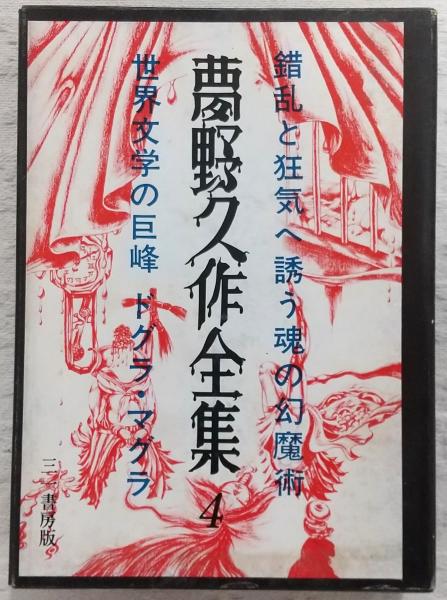 錯乱と狂気へ誘う魂の幻魔術
夢野久作全集4
世界文学の巨峰 ドグラ・マグラ
三一書房版